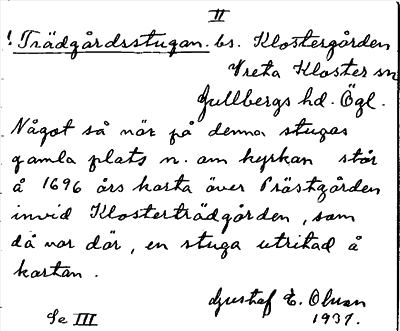 II
! Trädgårdsstugan. bs. Klostergården
Vreta Kloster sn
Gullbergs hd. Ögl.
Något så när på denna stugas
gamla plats n. om kyrkan står
å 1696 års karta över Prästgården
invid Klosterträdgården, som
då var där, en stuga utritad å
kartan.
Gustaf E. Olson
1937.
Se III